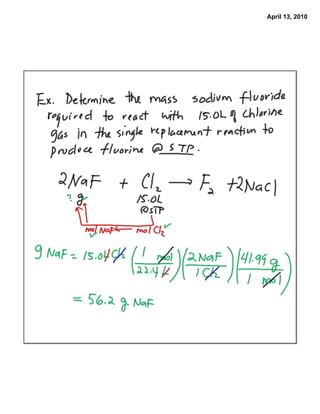 April 13, 2010
Ex. Determine the mass sodium fluoride
required to react with 15.0L of chlorine
gas in the single replacement reaction to
produce fluorine @ STP.
2NaF + Cl₂ → F₂ + 2NaCl
? g 15.0L
@STP
mol NaF ← mol Cl₂
g NaF = 15.0L Cl₂ (1 mol / 22.4 L) (2 NaF / 1 Cl₂) (41.99 g / 1 mol)
= 56.2 g NaF